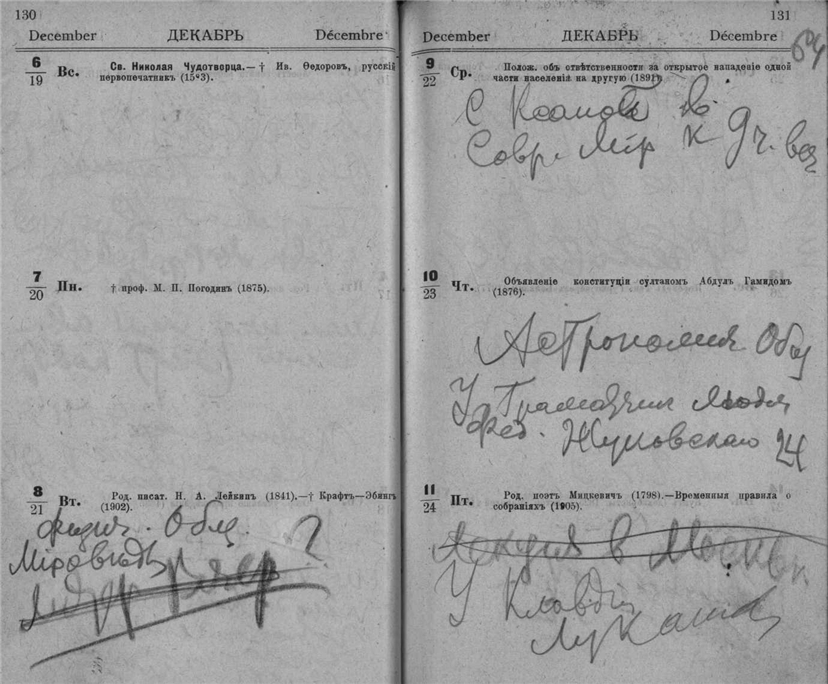 130
December ДЕКАБРЬ Décembre
6
19 Вс. Св. Николая Чудотворца.—† Ив. Ѳедоровъ, русскій
первопечатникъ (1583).
7
20 Пн. † проф. М. П. Погодинъ (1875).
8
21 Вт. Род. писат. Н. А. Лейкинъ (1841).—† Крафтъ-Эбингъ
(1902).
Физич. Общ.
Міровѣдѣ ?
131
December ДЕКАБРЬ Décembre
64
9
22 Ср. Полож. объ отвѣтственности за открытое нападеніе одной
части населенія на другую (1891).
С
Совр. Мір к 9 ч. веч
10
23 Чт. Объявленіе конституціи султаномъ Абдулъ Гамидомъ
(1876).
Астрономия Общ
У
Фед. Жуковскаго 24
11
24 Пт. Род. поэтъ Мицкевичъ (1798).—Временныя правила о
собраніяхъ (1905).
Лекция в Москвѣ
У Клавдіи
Лукашев